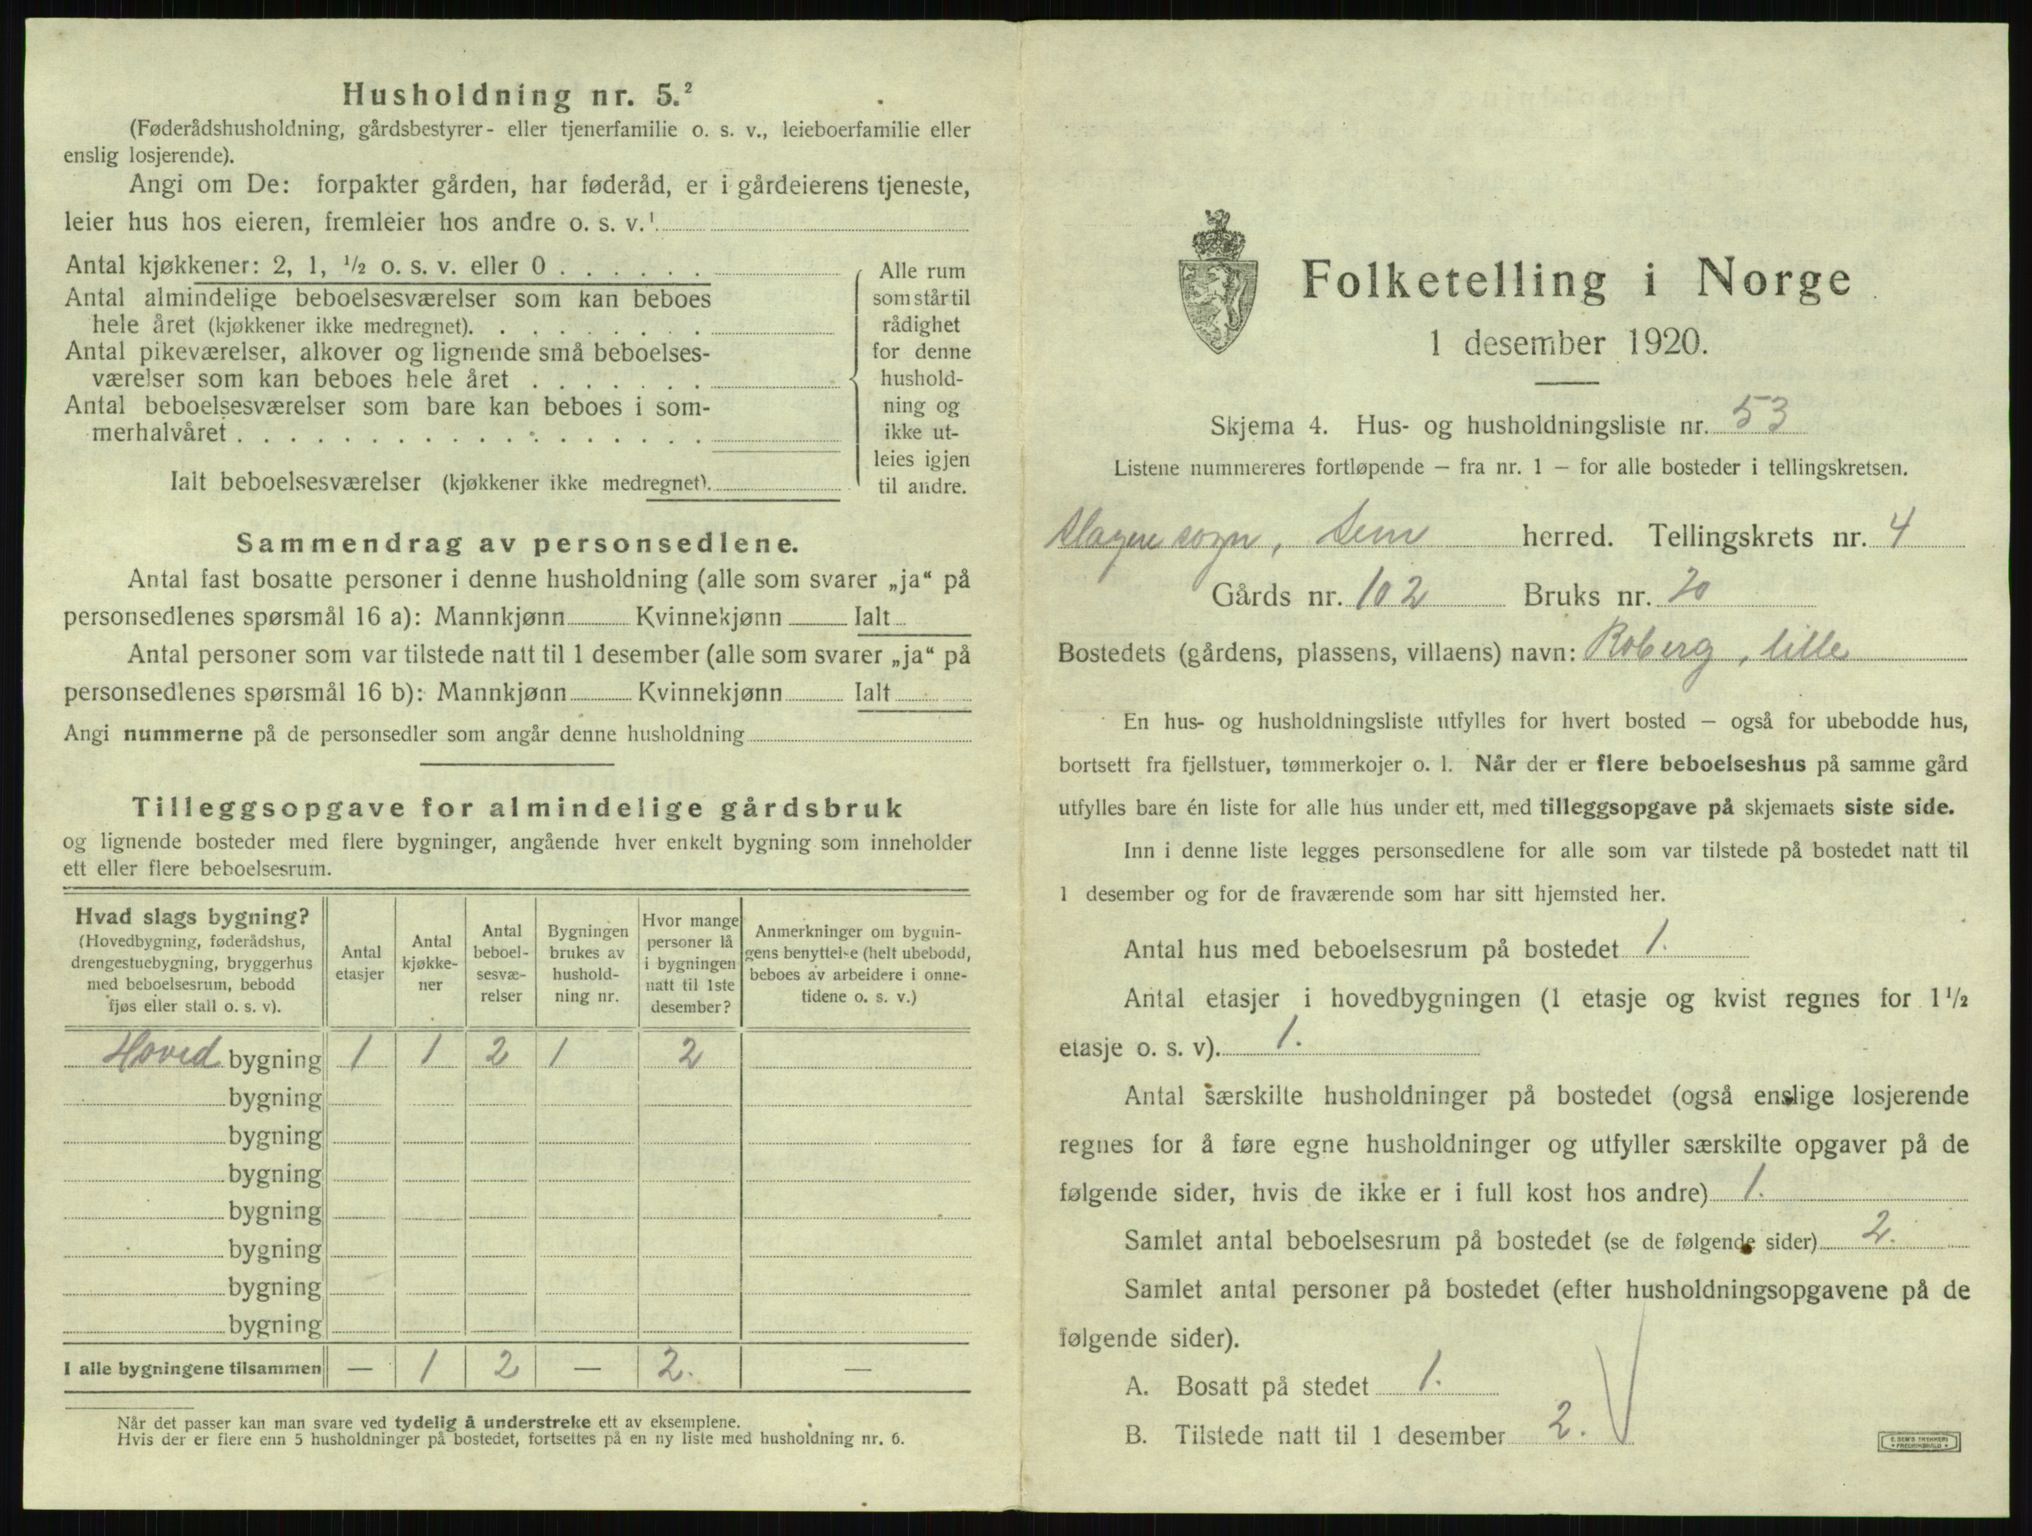 Husholdning nr. 5.²
(Føderådshusholdning, gårdsbestyrer- eller tjenerfamilie o. s. v., leieboerfamilie eller
enslig losjerende).
Angi om De: forpakter gården, har føderåd, er i gårdeierens tjeneste,
leier hus hos eieren, fremleier hos andre o. s. v.¹
Antal kjøkkener: 2, 1, ½ o. s. v. eller 0 . . . . . .
Antal almindelige beboelsesværelser som kan beboes
hele året (kjøkkener ikke medregnet). . . . . . . . .
Antal pikeværelser, alkover og lignende små beboelses-
værelser som kan beboes hele året . . . . . . .
Antal beboelsesværelser som bare kan beboes i som-
merhalvåret . . . . . . . . . . . . . . . . . .
Ialt beboelsesværelser (kjøkkener ikke medregnet).
Alle rum
som står til
rådighet
for denne
hushold-
ning og
ikke ut-
leies igjen
til andre.
Sammendrag av personsedlene.
Antal fast bosatte personer i denne husholdning (alle som svarer „ja“ på
personsedlenes spørsmål 16 a): Mannkjønn Kvinnekjønn Ialt
Antal personer som var tilstede natt til 1 desember (alle som svarer „ja“ på
personsedlenes spørsmål 16 b): Mannkjønn Kvinnekjønn Ialt
Angi nummerne på de personsedler som angår denne husholdning
Tilleggsopgave for almindelige gårdsbruk
og lignende bosteder med flere bygninger, angående hver enkelt bygning som inneholder
ett eller flere beboelsesrum.
Hvad slags bygning?
(Hovedbygning, føderådshus,
drengestuebygning, bryggerhus
med beboelsesrum, bebodd
fjøs eller stall o. s. v).
Antal
etasjer
Antal
kjøkke-
ner
Antal
beboel-
sesvæ-
relser
Bygningen
brukes av
hushold-
ning nr.
Hvor mange
personer lå
i bygningen
natt til 1ste
desember?
Anmerkninger om bygnin-
gens benyttelse (helt ubebodd,
beboes av arbeidere i onne-
tidene o. s. v.)
Hoved bygning 1 1 2 1 2
bygning
bygning
bygning
bygning
bygning
bygning
bygning
I alle bygningene tilsammen — 1 2 — 2. —
Når det passer kan man svare ved tydelig å understreke ett av eksemplene.
Hvis der er flere enn 5 husholdninger på bostedet, fortsettes på en ny liste med husholdning nr. 6.
Folketelling i Norge
1 desember 1920.
Skjema 4. Hus- og husholdningsliste nr. 53
Listene nummereres fortløpende – fra nr. 1 – for alle bosteder i tellingskretsen.
Slagen sogn, Sem herred. Tellingskrets nr. 4
Gårds nr. 102 Bruks nr. 20
Bostedets (gårdens, plassens, villaens) navn: Roberg, lille
En hus- og husholdningsliste utfylles for hvert bosted – også for ubebodde hus,
bortsett fra fjellstuer, tømmerkojer o. l. Når der er flere beboelseshus på samme gård
utfylles bare én liste for alle hus under ett, med tilleggsopgave på skjemaets siste side.
Inn i denne liste legges personsedlene for alle som var tilstede på bostedet natt til
1 desember og for de fraværende som har sitt hjemsted her.
Antal hus med beboelsesrum på bostedet 1.
Antal etasjer i hovedbygningen (1 etasje og kvist regnes for 1½
etasje o. s. v). 1.
Antal særskilte husholdninger på bostedet (også enslige losjerende
regnes for å føre egne husholdninger og utfyller særskilte opgaver på de
følgende sider, hvis de ikke er i full kost hos andre) 1.
Samlet antal beboelsesrum på bostedet (se de følgende sider) 2.
Samlet antal personer på bostedet (efter husholdningsopgavene på de
følgende sider).
A. Bosatt på stedet 1.
B. Tilstede natt til 1 desember 2.